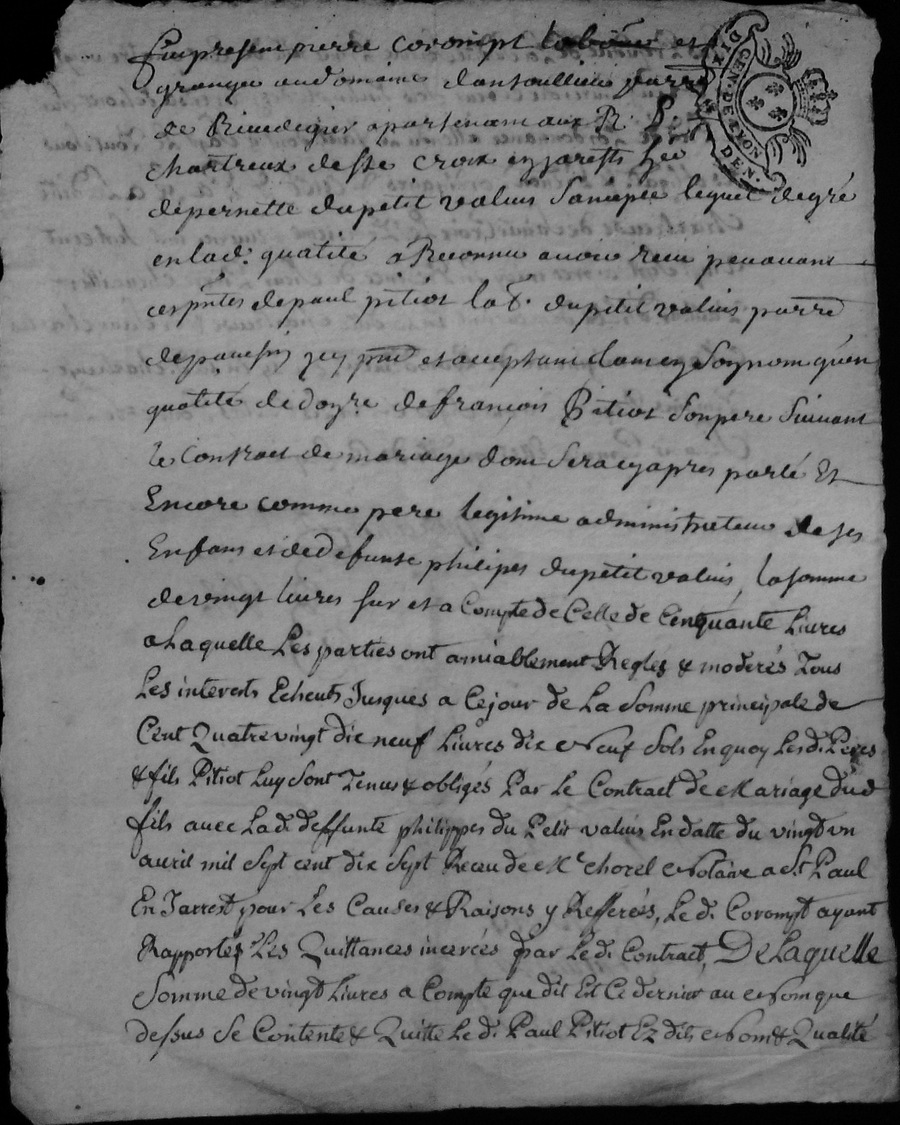 Fut present pierre corompt laboureur et
granger au domaine dantoullieu parr
de Riverdegier apartenant aux R. P.
chartreux de ste croix en jarests
de pernette du petit valuis sa lequel de gré
en lad. qualité a Reconnu avoir receu pcu avant
ces pntes de paul pitiot lab. du petit valuis parre
de icy pnt et acceptant tant en son nom qu'en
qualité de de françois Pitiot son pere suivant
le Contract de mariage dont sera cy apres parlé Et
Encore comme pere legitime administrateur de ses
Enfans et de defunte philipes du petit valuis, la somme
de vingt livres sur et a Compte de Celle de Cinquante Livres
a Laquelle Les parties ont amiablement Reglés & moderés Tous
Les interests Echeuts Jusques a Cejour de La Somme principale de
Cent Quatre vingt dix neuf Livres dix Neuf Sols En quoy Les d. Peres
& fils Pitiot Luy Sont Tenus & obligés Par Le Contract de Mariage dud
fils avec La d. deffunte philippes du Petit valuis En datte du vingt un
avril mil Sept cent dix Sept Receu de Me chorel Notaire a St Paul
En Jarrest pour Les Causes & Raisons y Refferées, Le d. Corompt ayant
Rapportés Les Quittances incerées par Le d. Contract, De Laquelle
Somme de vingt Livres a Compte que dit Est Ce dernier au Nom que
dessus Se Contente & Quitte Le d. Paul Pitiot Ez dits Nom & Qualité
DIX
GEN. DE LYON
DEN.